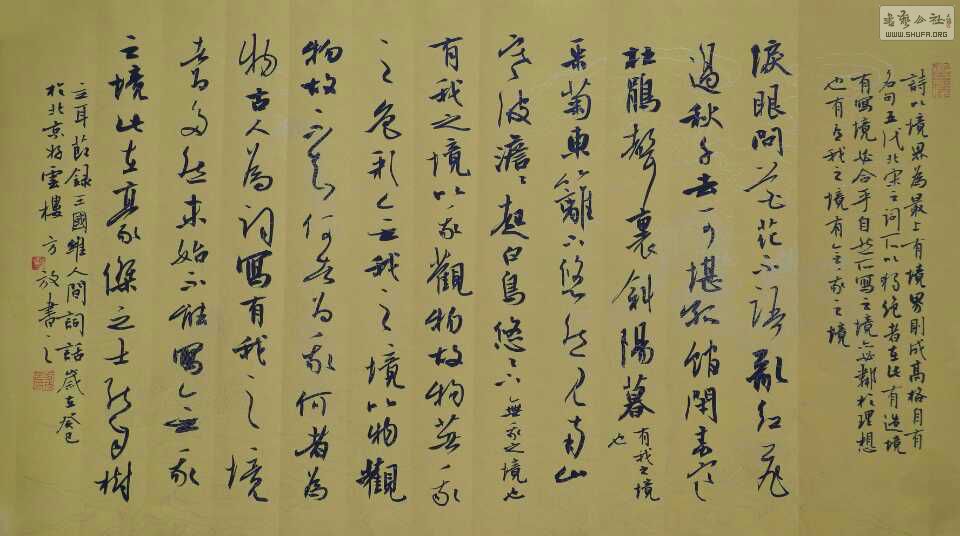 詩以境界為最上有境界則成高格自有
名句五代北宋之詞所以獨絕者在此有造境
有寫境必合乎自然所寫之境亦必鄰於理想
也有有我之境有無我之境
淚眼問花花不語亂紅飛
過秋千去可堪孤館閉春寒
杜鵑聲裏斜陽暮有我之境
也
采菊東籬下悠然見南山
寒波澹〻起白鳥悠〻下無我之境也
有我之境以我觀物故物著我
之色彩無我之境以物觀
物故不知何者為我何者為
物古人為詞寫有我之境
者為多然未始不能寫無我
之境此在豪傑之士能自樹
立耳節錄王國維人間詞話歲在癸巳
於北京好雲樓方放書之
書藝公社
WWW.SHUFA.ORG